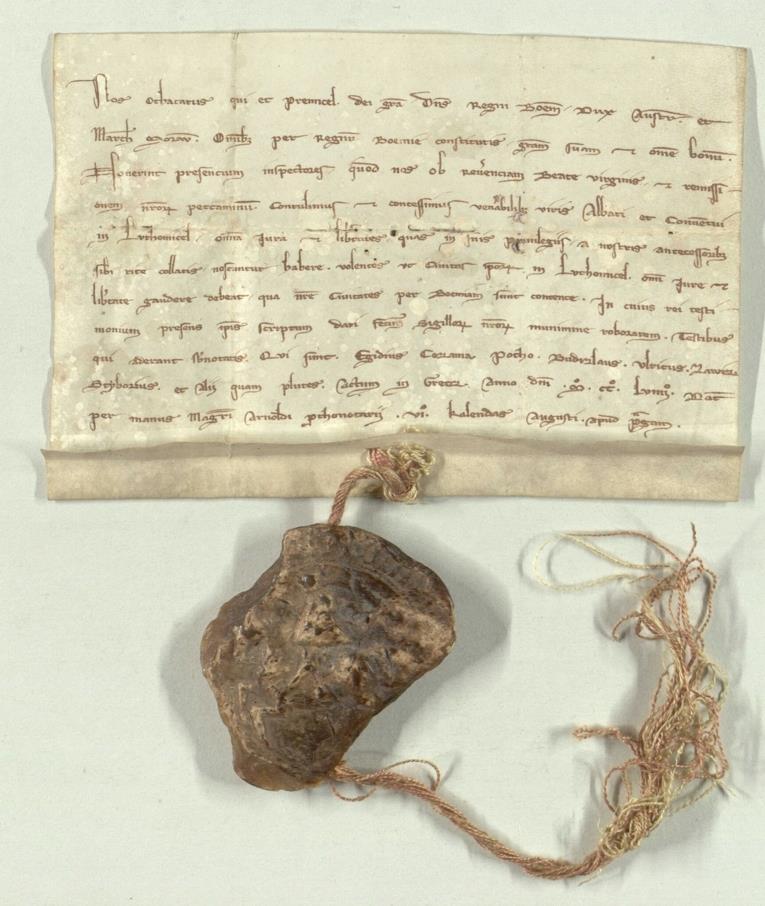 Nos Othacarus qui et Premicel. dei gr̄a Dn̄s Regni Boem̄. Dux Austr̄. et
March̄ Morav̄. Omīb; per Regnū Boemie constitutis gr̄am suam et om̄e bonū.
Noverint presencium inspectores quod nos ob Rev̄enciam Beate virginis. et remissi
onem nr̄oꝝ peccaminū. Contulimus et concessimus ven̄abilib; viris Abbati et Conventui
in Luthomicel. om̄ia jura et lib̄tates quas in suis Privilegiis a nostris antecessorib;
sibi rite collatis noscuntur habere. volentes ut Civitas ip̄oꝝ in Luthomicel. om̄i jure et
lib̄tate gaudere debeat qua nr̄e Civitates per Boemiam sunt contente. In cuius rei testi
monium presens ip̄is scriptum dari fecim̄ Sigilloꝝ nr̄oꝝ munimine roboratum. Testibus
qui aderant sb̄notatis. Qui sunt. Egidius Pocho. Budizlaus. Ulricus.
Styborius. et Alii quam plures. Actum in Grecz. Anno dn̄i .mͦ. ccͦ. Lviiiiͦ. Dat̄
per manus Magr̄i Arnoldi p̄thonotarii .viiͦ. kalendas Augusti. apud p̄gam.